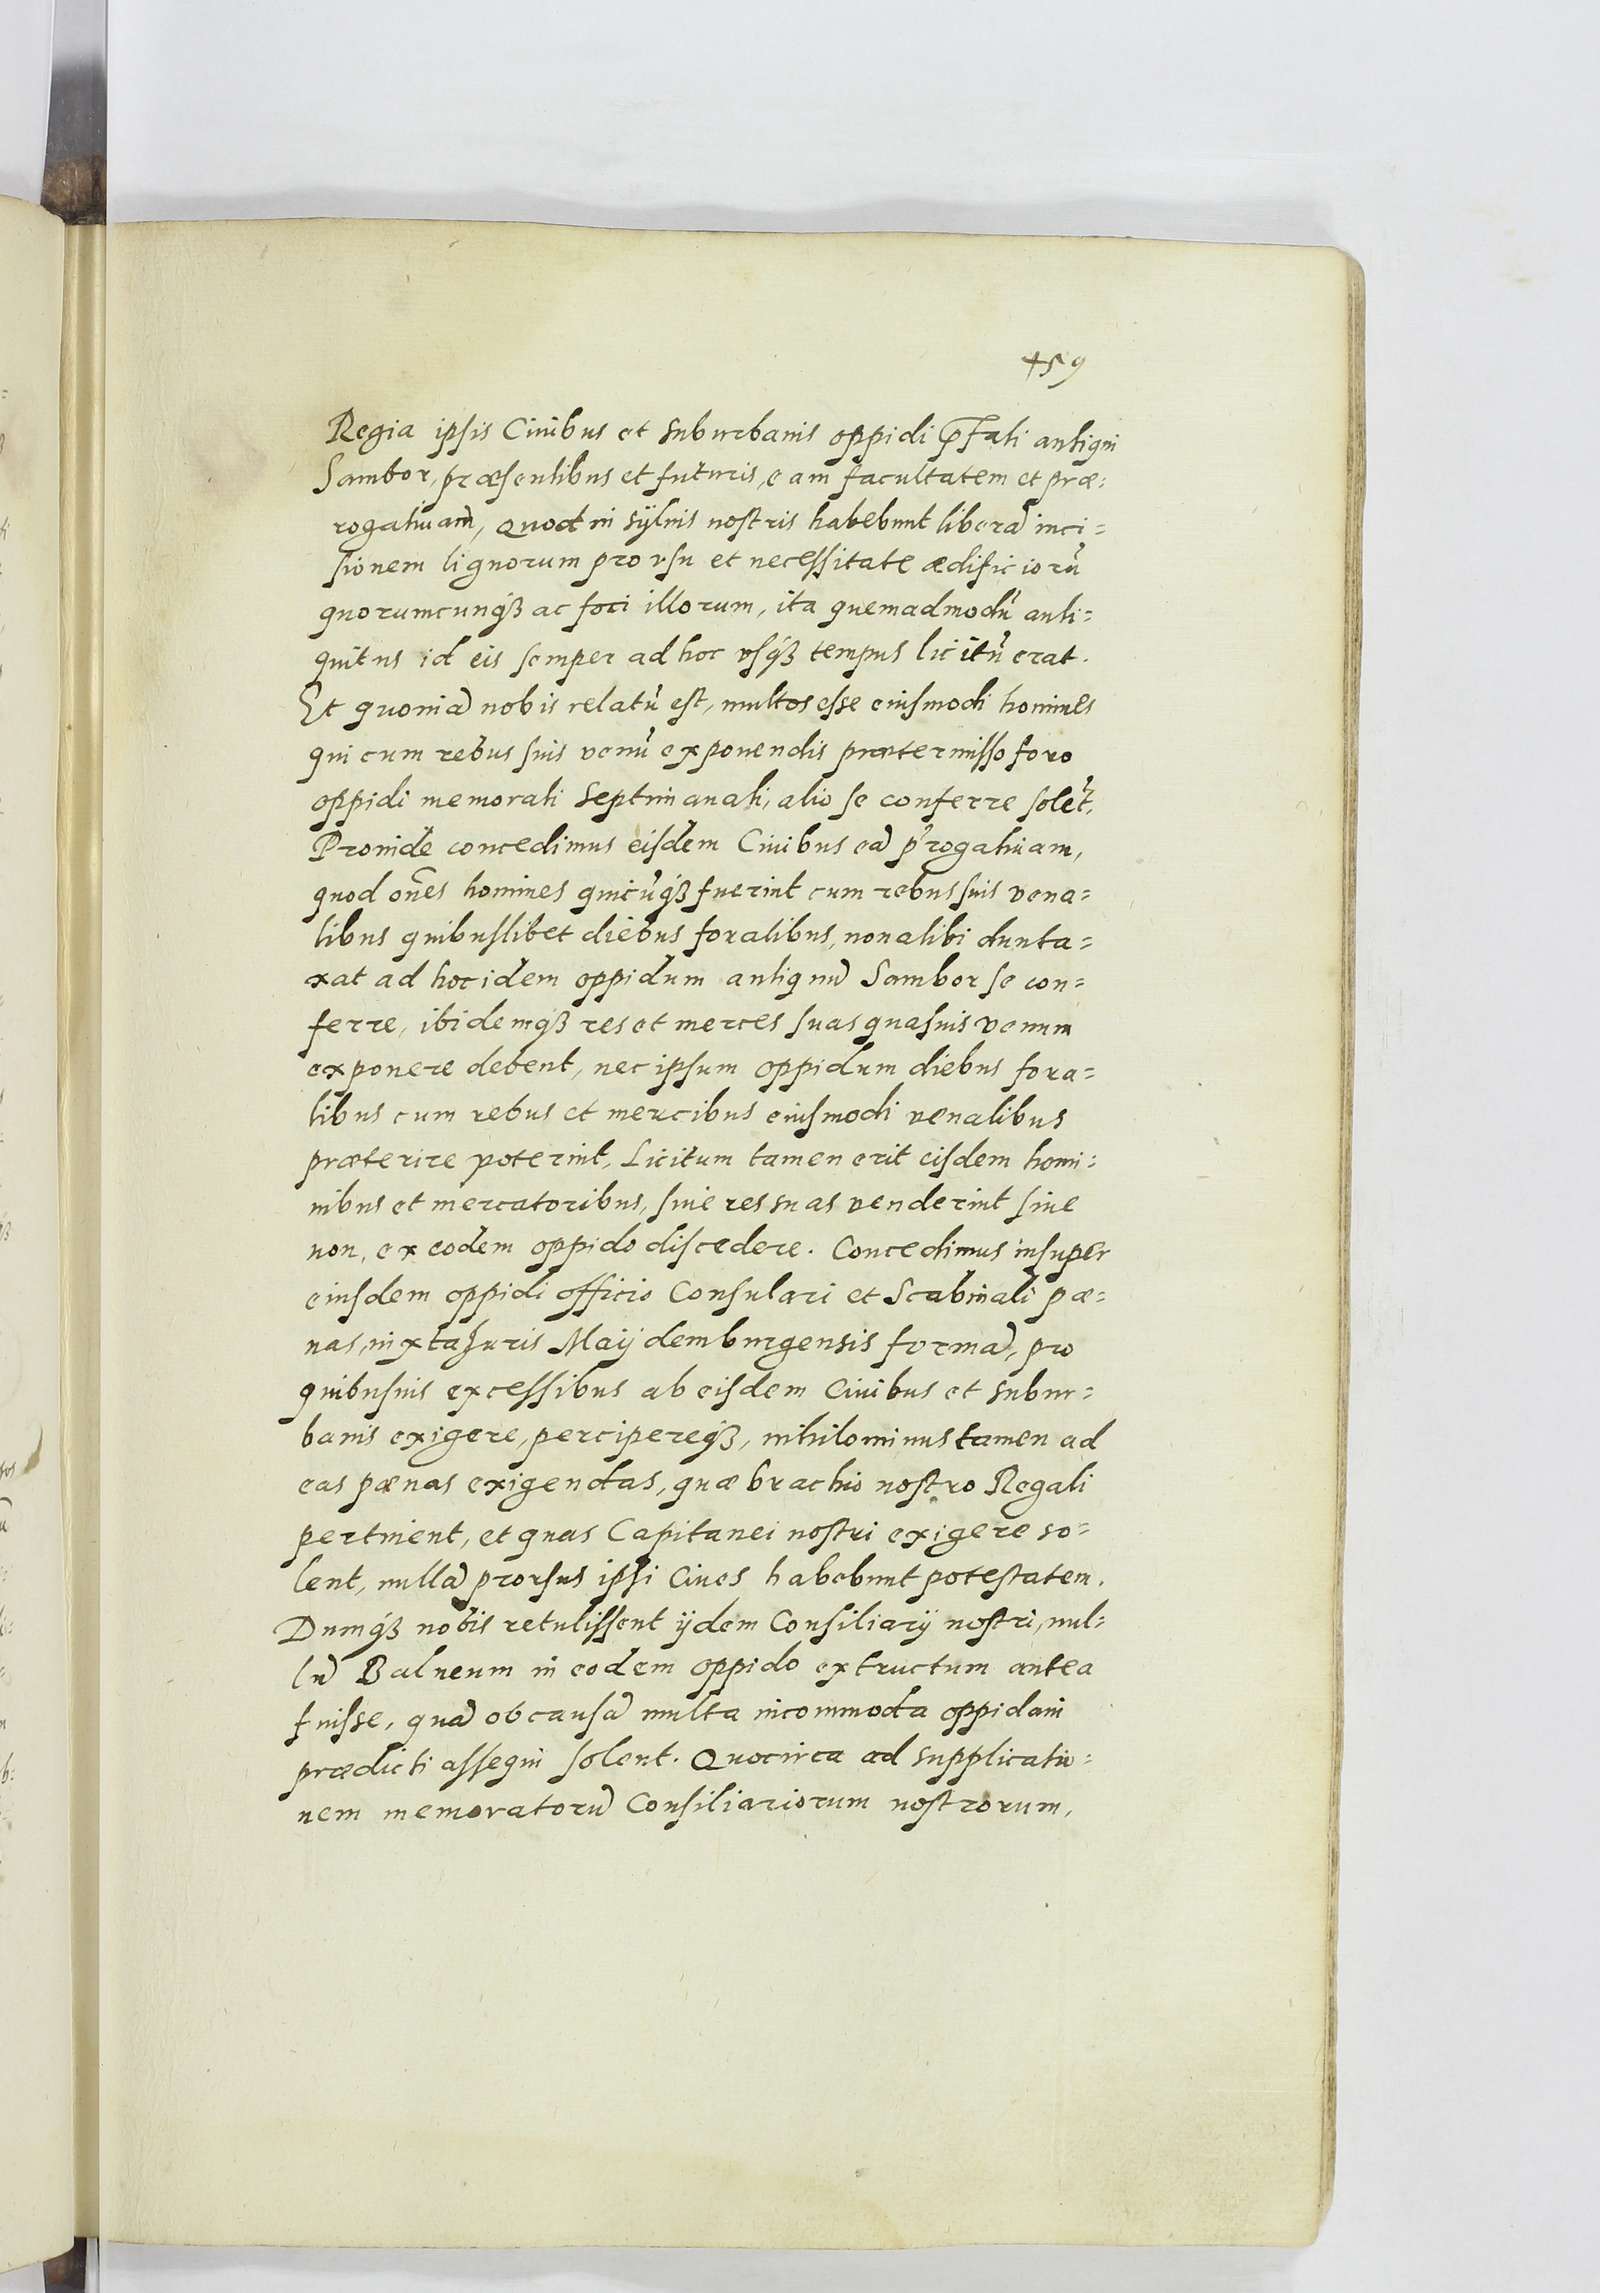 459
Regia ipsis Ciuibus et suburbanis oppidi p̄fati antiqui
Sambor, præsentibus et futuris, eam facultatem et præ=
rogatiuam, quod in sÿluis nostris habebunt liberā inci=
sionem lignorum pro vsu et necessitate ædificiorū
quorumcunqȝ ac foci illorum, ita quemadmodū anti=
quitus id eis semper ad hoc vsqȝ tempus licitū erat.
Et quoniā nobis relatū est, multos esse eiusmodi homines
qui cum rebus suis venū exponendis prætermisso foro
oppidi memorati septimanali, alio se conferre solēt,
Prouide concedimus eisdem Ciuibus eā p̄rogatiuam,
quod oēs homines quicūqȝ fuerint cum rebus suis vena=
libus quibuslibet diebus foralibus, non alibi dunta=
xat ad hoc idem oppidum antiquū Sambor se con=
ferre, ibidemqȝ res et merces suas quasuis venum
exponere debent, nec ipsum oppidum diebus fora=
libus cum rebus et mercibus eiusmodi venalibus
præterire poterint, Licitum tamen erit eisdem homi=
nibus et mercatoribus, siue res suas venderint siue
non, ex eodem oppido discedere. Concedimus insuper
eiusdem oppidi officio Consulari et Scabinali pæ=
nas, iuxta Juris Maÿdemburgensis formā, pro
quibusuis excessibus ab eisdem Ciuibus et subur=
banis exigere, percipereqȝ, nihilominus tamen ad
eas pænas exigendas, quæ brachio nostro Regali
pertinent, et quas Capitanei nostri exigere so=
lent, nullā prorsus ipsi Ciues habebunt potestatem.
Dumqȝ nobis retulissent ijdem Consiliarij nostri, nul=
lū Balneum in eodem oppido extructum antea
fuisse, quā ob causā multa incommoda oppidani
prædicti assequi solent. Quocirca ad supplicatio=
nem memoratorū Consiliariorum nostrorum,